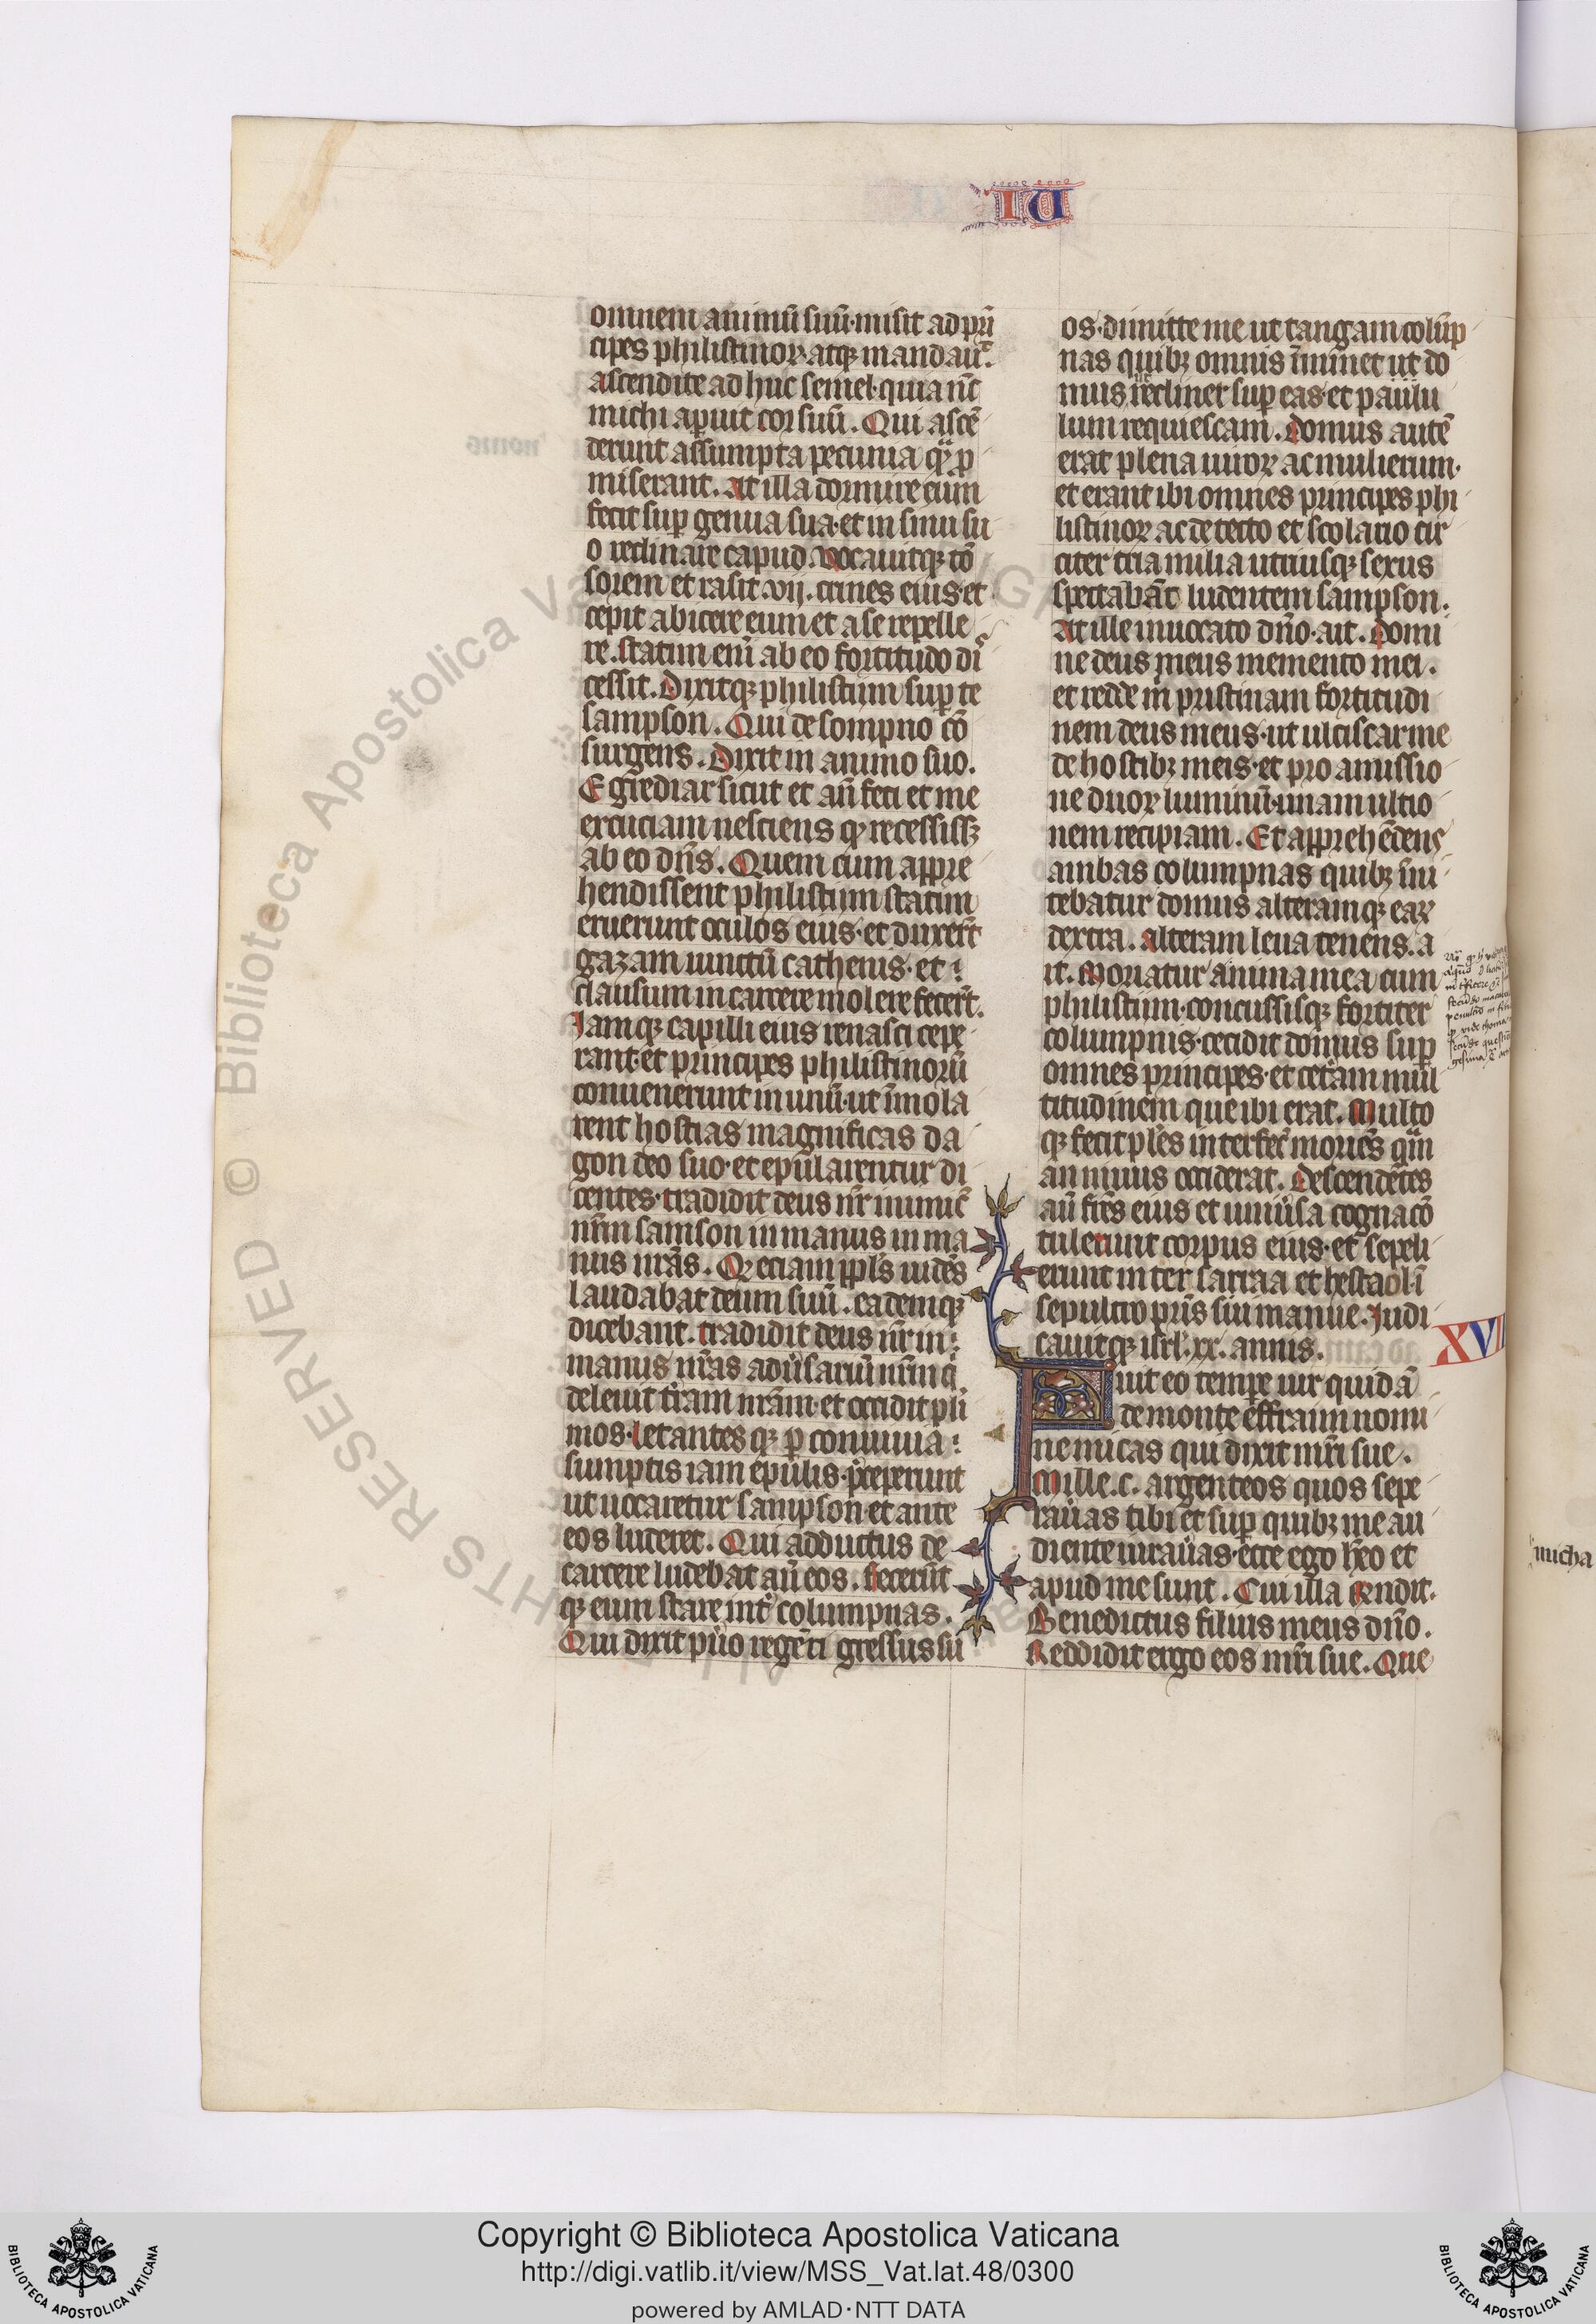 DI
omnem animū suū·misit ad pri̅
cipes philistinoꝝ·atqꝫ mandauͭ.
ascendite ad huc semel·quia nͨc
michi aꝑuit cor suū. Qui ascē
derunt assumpta pecunia qᷓ ꝓ
miserant. At illa dormire eum
fecit suꝑ genua sua·et in sinu su
o reclinare capud. vocauitqꝫ tō
sorem et rasit .vij. crines eius·et
cepit abicere eum et a se repelle
re. statim eni̅ ab eo fortitudo di
cessit. Dixitqꝫ philistiim suꝑ te
sampson. Qui de sompno cō
surgens. Dixit in animo suo.
Egrediar sicut et an̄ feci et me
excuciam nesciens qꝫ recessissꝫ
ab eo dn̄s. Quem cum appre
hendissent philistiim statim
eruerunt oculos eius·et duxerūt
gazam iunctū cathenis·et
clausum in carcere molere fecer̄t.
Jamqꝫ capilli eius renasci cepe
rant·et principes philistinorū
conuenerunt in unū·ut īmola
rent hostias magnificas da
gon deo suo·et epularentur di
centes·tradidit deus nr̄ inimic̄
nr̄m samson in manus in ma
nus nr̄as. Qꝫ eciam ppl̄s uidēs
laudabat deum suū. eademqꝫ
dicebant. tradidit deus nr̄ in
manus nr̄as adūsariū nr̄m qͥ
deleuit tr̄am nr̄am·et occidit pl̓i
mos·letantesqꝫ ꝑ conuiuia
sumptis iam epulis·p̄ceperunt
ut uocaretur sampson·et ante
eos luderet. Qui adductus de
carcere ludebat an̄ eos. fecerūt
qꝫ eum stare int̓ columpnas.
Qui dixit pūo regēti gressus su
os·dimitte me ut tangam colūp
nas quibꝫ omnis īminet ut do
mus ut recliner suꝑ eas·et paulu
lum requiescam. Domus autē
erat plena uiroꝝ ac mulierum·
et erant ibi omnes principes phi
listinoꝝ ac de tecto et scolario cir
citer tria milia utriusqꝫ sexus
spectabāt ludentem sampson.
At ille inuocato dn̄o·ait. Domi
ne deus meus memento mei.
et redde m̄ pristinam fortitudi
nem deus meus·ut ulciscar me
de hostibꝫ meis·et pro amissio
ne duoꝝ luminū·unam ultio
nem recipiam. Et apprehēdens
ambas columpnas quibꝫ īni
tebatur domus alteramqꝫ eaꝝ
dextra. alteram leua tenens. a
it. Moriatur anima mea cum
philistiim·concussisqꝫ fortiter
columpnis·cecidit domus suꝑ
omnes principes·et cet̓am mul
titudinem que ibi erat. Multo
qꝫ fecit pl̓es interfec̄ moriēs qᷓm
an uiuus occiderat. Descendētes
aū fr̄es eius et uniūsa cognacō
tulerunt corpus eius·et sepeli
erunt inter sarraa et hestaol·ī
sepulcro pr̄is sui manue. Judi
cauitqꝫ isrl̄·xx. annis.
XVII
Fuit eo tempe uir quidā
de monte effraim nomi
ne micas qui dixit mr̄i sue.
Mille .c. argenteos quos sepe
raūas tibi et suꝑ quibꝫ me au
diente iuraūas·ecce ego h̄eo et
apud me sunt. Cui illa rn̄dit.
Benedictus filius meus dn̄o.
Reddidit ergo eos mr̄i sue. Que
micha
Copyright © Biblioteca Apostolica Vaticana
http://digi.vatlib.it/view/MSS_Vat.lat.48/0300
powered by AMLAD·NTT DATA
BIBLIOTECA APOSTOLICA VATICANA
BIBLIOTECA APOSTOLICA VATICANA